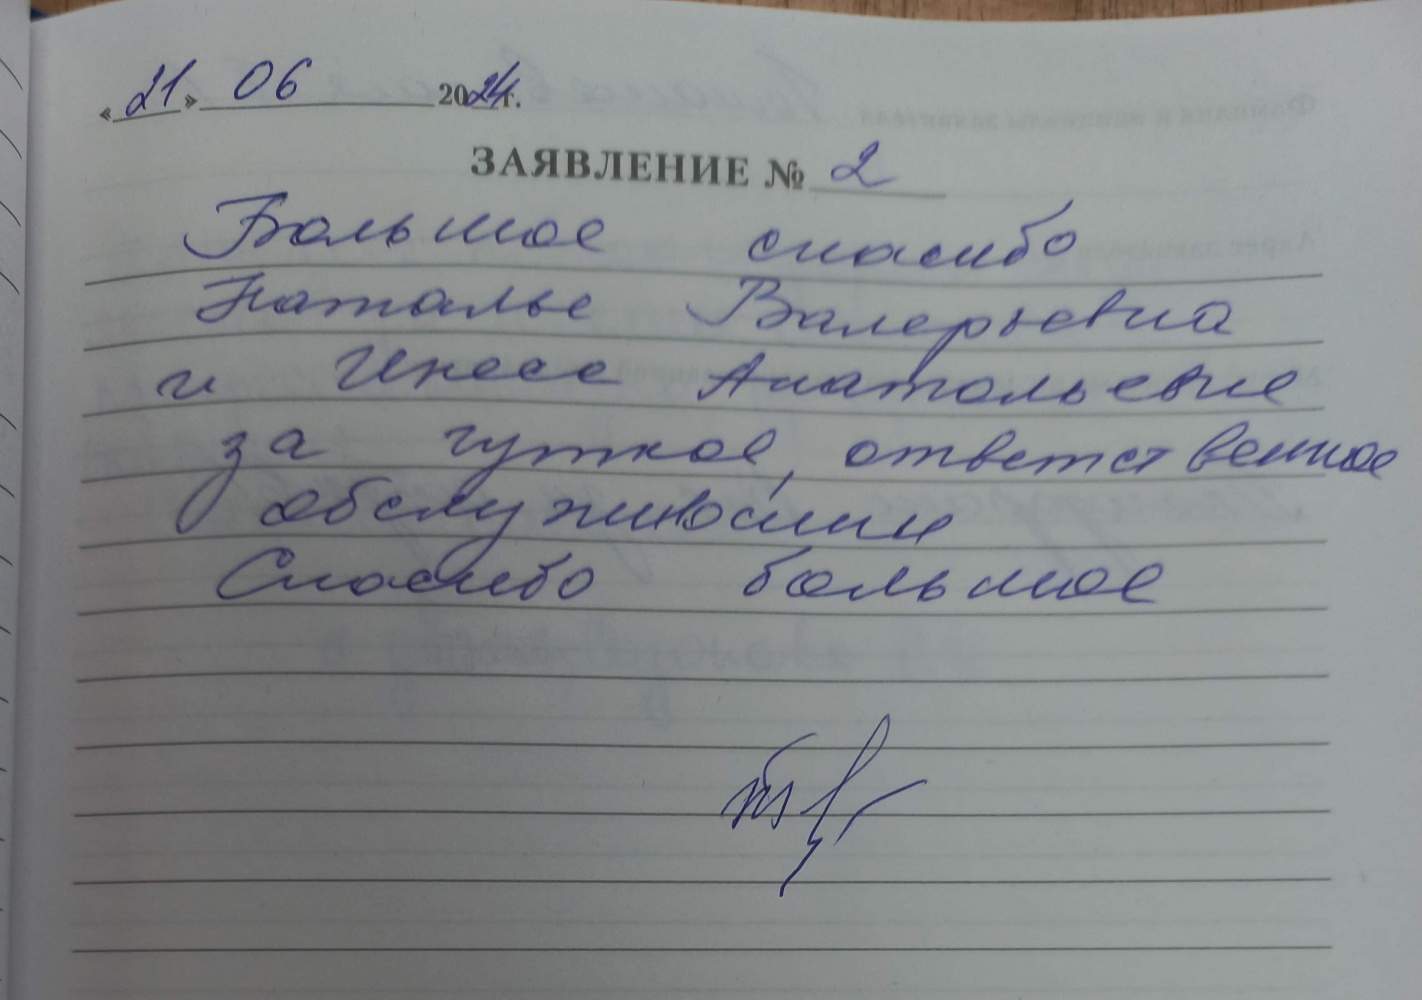 «21» 06 2024г.
ЗАЯВЛЕНИЕ № 2
Большое спасибо
Наталье Валерьевна
и Инесе Анатольевне
за чуткое, ответственное
обслуживании
Спасибо большое